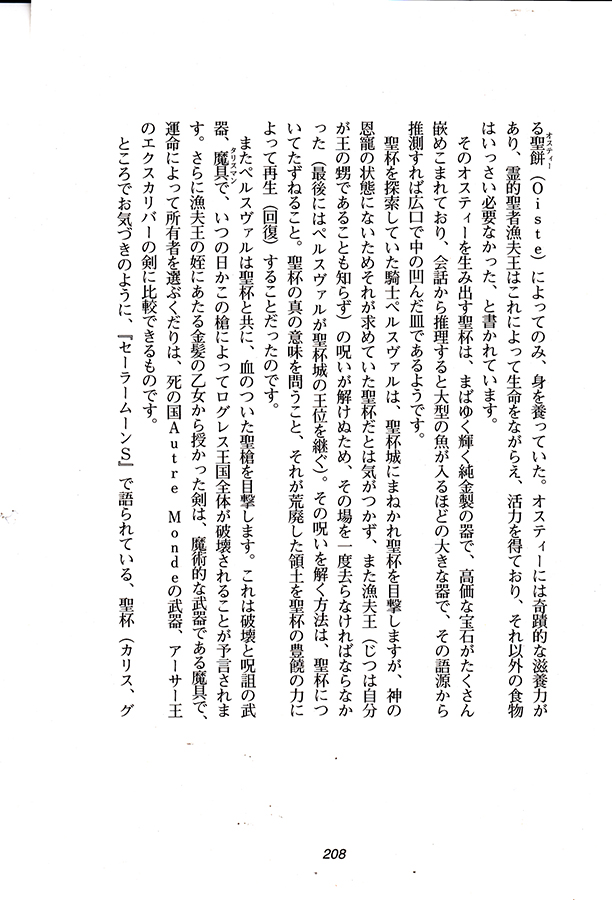 る聖餅（Oiste）によってのみ、身を養っていた。オスティーには奇蹟的な滋養力が
オスティー
あり、霊的聖者漁夫王はこれによって生命をながらえ、活力を得ており、それ以外の食物
はいっさい必要なかった、と書かれています。
そのオスティーを生み出す聖杯は、まばゆく輝く純金製の器で、高価な宝石がたくさん
嵌めこまれており、会話から推理すると大型の魚が入るほどの大きな器で、その語源から
推測すれば広口で中の凹んだ皿であるようです。
聖杯を探索していた騎士ペルスヴァルは、聖杯城にまねかれ聖杯を目撃しますが、神の
恩寵の状態にないためそれが求めていた聖杯だとは気がつかず、また漁夫王（じつは自分
が王の甥であることも知らず）の呪いが解けぬため、その場を一度去らなければならなか
った（最後にはペルスヴァルが聖杯城の王位を継ぐ）。その呪いを解く方法は、聖杯につ
いてたずねること。聖杯の真の意味を問うこと、それが荒廃した領土を聖杯の豊饒の力に
よって再生（回復）することだったのです。
またペルスヴァルは聖杯と共に、血のついた聖槍を目撃します。これは破壊と呪詛の武
器、魔具で、いつの日かこの槍によってログレス王国全体が破壊されることが予言されま
タリスマン
す。さらに漁夫王の姪にあたる金髪の乙女から授かった剣は、魔術的な武器である魔具で、
運命によって所有者を選ぶくだりは、死の国Autre Mondeの武器、アーサー王
のエクスカリバーの剣に比較できるものです。
ところでお気づきのように、『セーラームーンS』で語られている、聖杯（カリス、グ
208